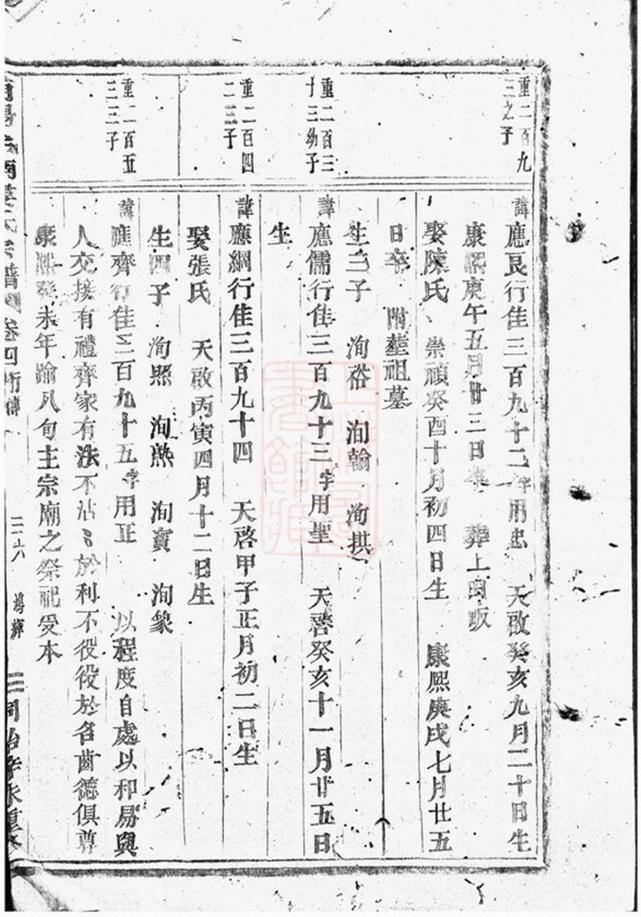 重二百九
三之子
諱應良行佳三百九十二字用忠 天啟癸亥九月二十日生
康熙庚午五月廿三日卒 葬上田畈
娶陳氏 崇禎癸酉十月初四日生 康熙庚戌七月廿五
日卒 附葬祖墓
生三子 洵裕 洵翰 洵拱
重二百三
十三幼子
諱應儒行佳三百九十三字用聖 天啓癸亥十一月廿五日
生
重二百四
二三子
諱應綱行佳三百九十四 天啓甲子正月初二日生
娶張氏 天啟丙寅四月十二日生
生四子 洵熙 洵 洵 洵象
重二百五
三三子
諱應齊行佳三百九十五字用正 以程度自處以和易與
人交接有禮齊家有法不沾沾於利不役役於名齒德俱尊
康熙癸未年踰八旬主宗廟之祭祀受本
氏宗譜 卷四行傳
二六
三 同治 重